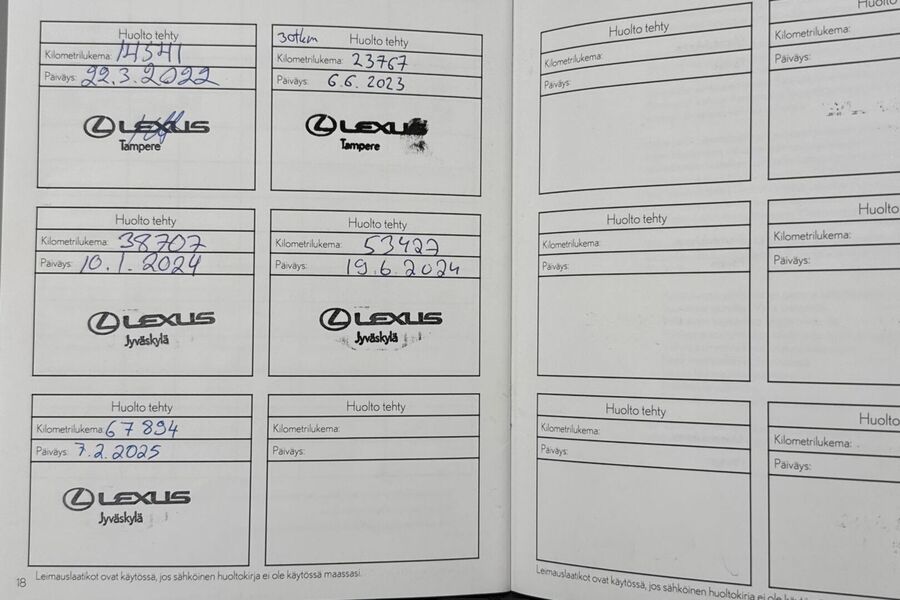 Huolto tehty
Kilometrilukema: 14341
Päiväys: 22.3.2022
LEXUS
Tampere
30tkm Huolto tehty
Kilometrilukema: 23767
Päiväys: 6.6.2023
LEXUS
Tampere
Huolto tehty
Kilometrilukema: 38707
Päiväys: 10.1.2024
LEXUS
Jyväskylä
Huolto tehty
Kilometrilukema: 53427
Päiväys: 19.6.2024
LEXUS
Jyväskylä
Huolto tehty
Kilometrilukema: 67894
Päiväys: 7.2.2025
LEXUS
Jyväskylä
Huolto tehty
Kilometrilukema:
Päiväys:
18 Leimauslaatikot ovat käytössä, jos sähköinen huoltokirja ei ole käytössä maassasi.
Huolto tehty
Kilometrilukema:
Päiväys:
Huolto
Kilometrilukema:
Päiväys:
Huolto tehty
Kilometrilukema:
Päiväys:
Huolto
Kilometrilukema:
Päiväys:
Huolto tehty
Kilometrilukema:
Päiväys:
Huolto
Kilometrilukema:
Päiväys:
Leimauslaatikot ovat käytössä, jos sähköinen huoltokirja ei ole